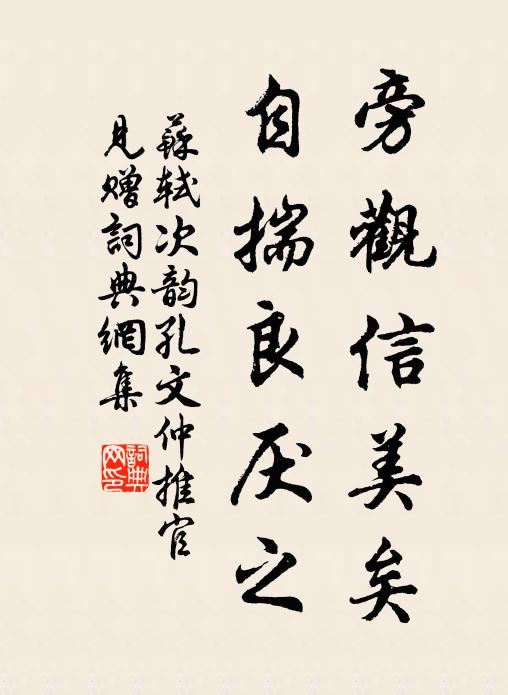 旁觀信美矣
自揣良厌之
蘇軾次韵孔文仲推官
見贈詞典網集
詞典
网印